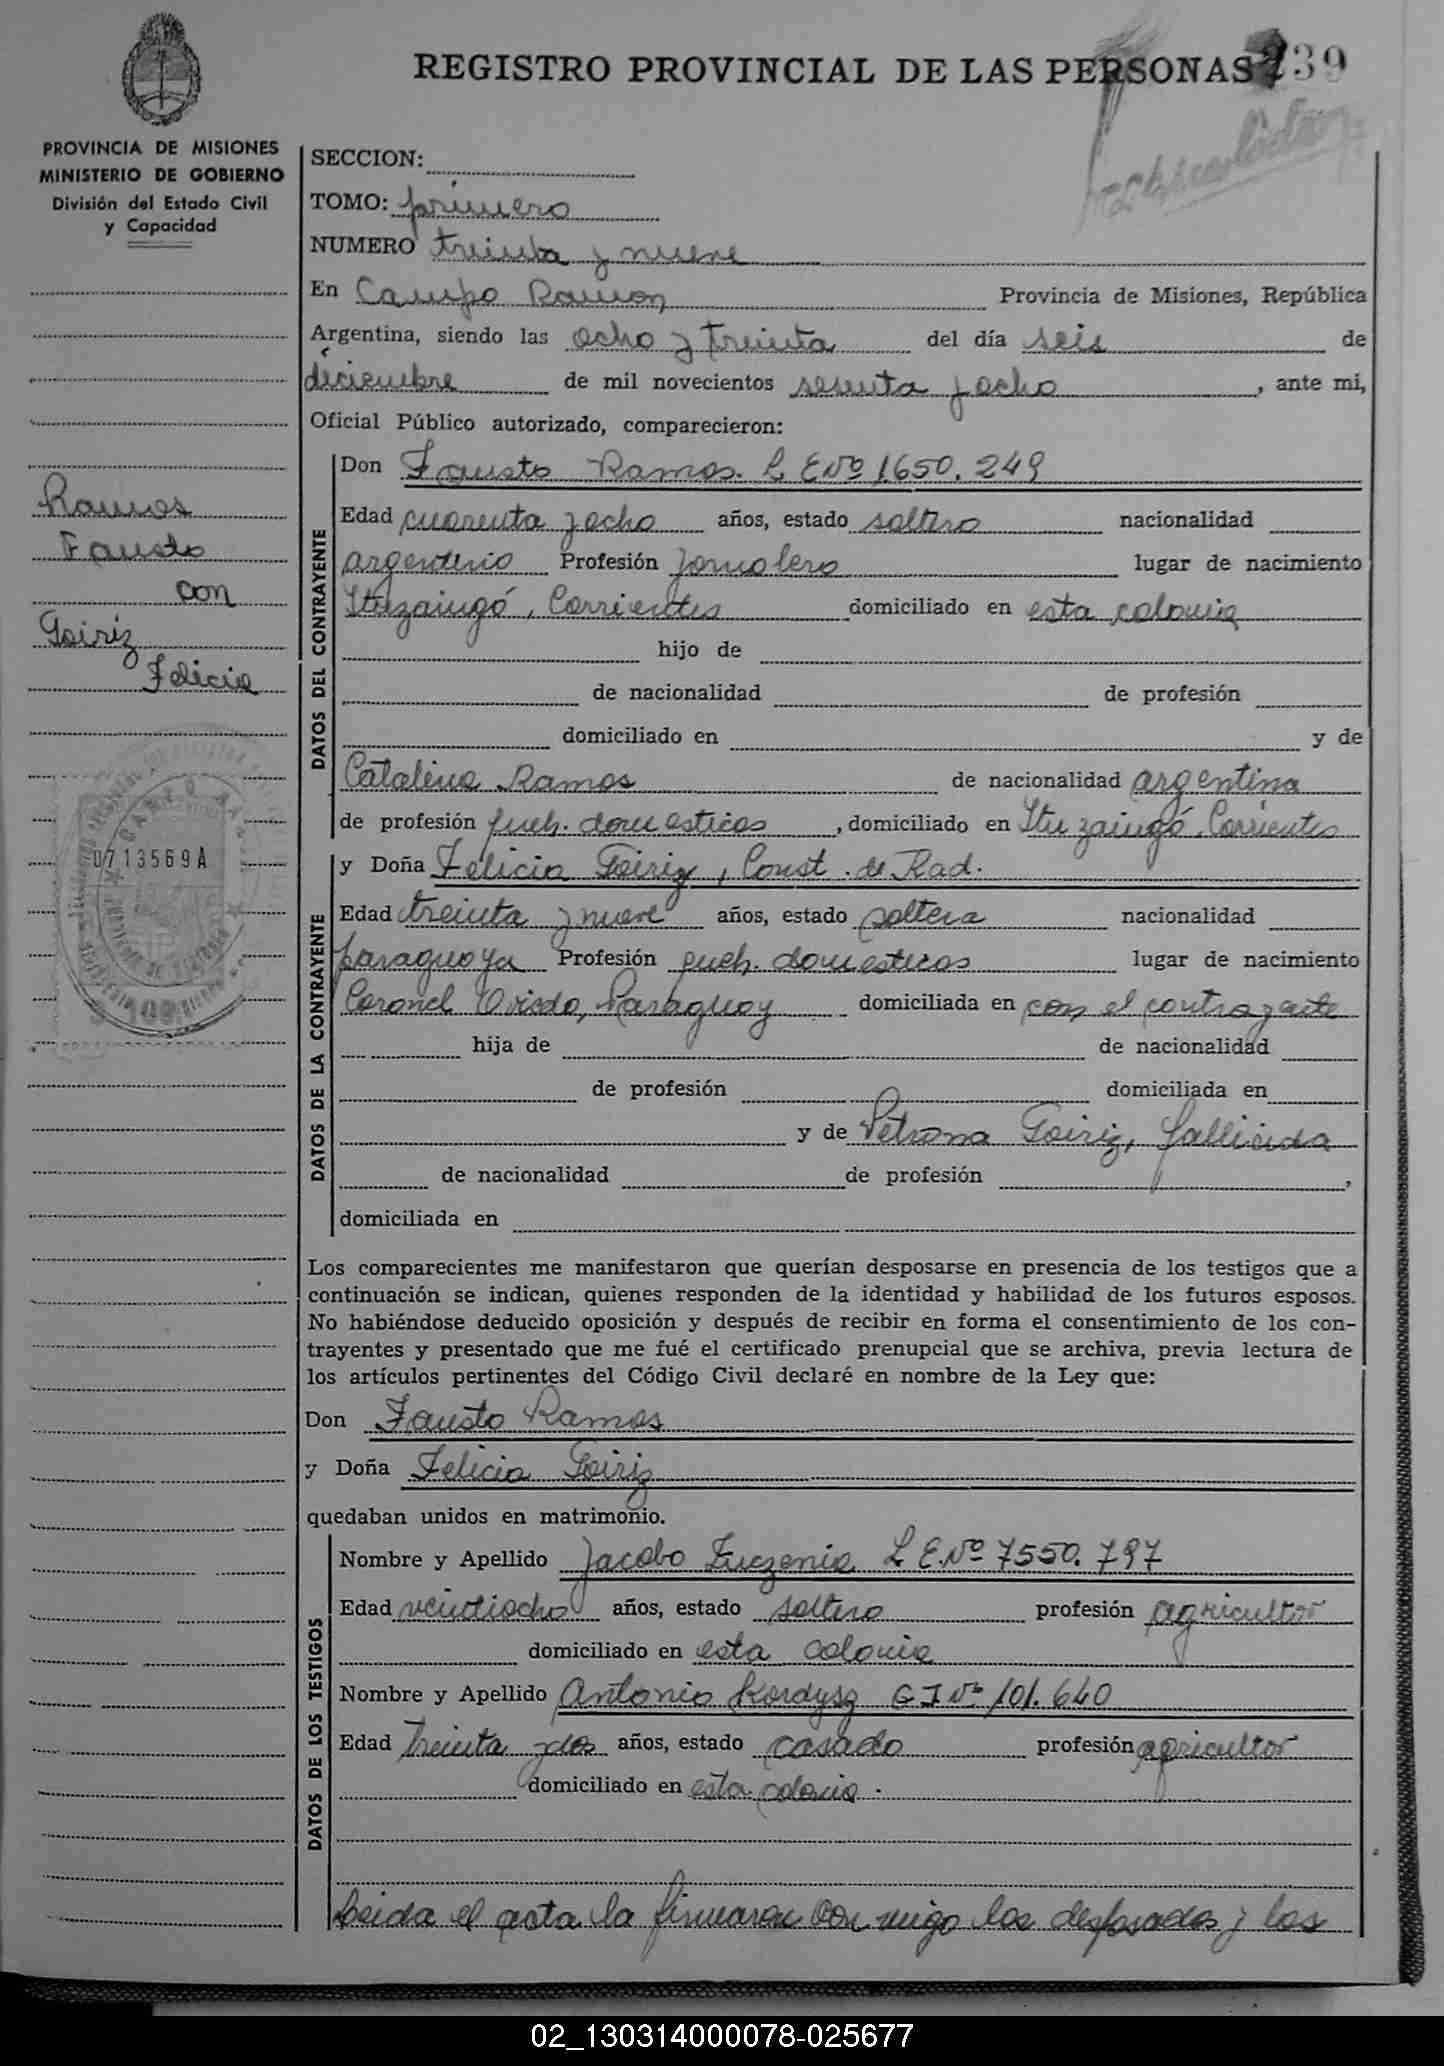 REGISTRO PROVINCIAL DE LAS PERSONAS 239
PROVINCIA DE MISIONES
MINISTERIO DE GOBIERNO
División del Estado Civil
y Capacidad
SECCION:
TOMO: primero
NUMERO treinta y nueve
En Campo Ramon Provincia de Misiones, República
Argentina, siendo las ocho y treinta del día seis de
diciembre de mil novecientos sesenta y ocho, ante mi,
Oficial Público autorizado, comparecieron:
Ramos
Fausto
con
Goiriz
Felicia
0713569A
DATOS DEL CONTRAYENTE
Don Fausto Ramos. L E Nº 1.650.249
Edad cuarenta y ocho años, estado soltero nacionalidad
argentino Profesión jornalero lugar de nacimiento
Ituzaingó, Corrientes domiciliado en esta colonia
hijo de
de nacionalidad de profesión
domiciliado en y de
Catalina Ramos de nacionalidad argentina
de profesión queh. domesticos, domiciliado en Ituzaingó, Corrientes
DATOS DE LA CONTRAYENTE
y Doña Felicia Goiriz, Const. de Rad.
Edad treinta y nueve años, estado soltera nacionalidad
paraguaya Profesión queh. domesticos lugar de nacimiento
Coronel Oviedo, Paraguay domiciliada en con el contrayente
hija de de nacionalidad
de profesión domiciliada en
y de Petrona Goiriz, fallecida
de nacionalidad de profesión ,
domiciliada en
Los comparecientes me manifestaron que querían desposarse en presencia de los testigos que a
continuación se indican, quienes responden de la identidad y habilidad de los futuros esposos.
No habiéndose deducido oposición y después de recibir en forma el consentimiento de los con-
trayentes y presentado que me fué el certificado prenupcial que se archiva, previa lectura de
los artículos pertinentes del Código Civil declaré en nombre de la Ley que:
Don Fausto Ramos
y Doña Felicia Goiriz
quedaban unidos en matrimonio.
DATOS DE LOS TESTIGOS
Nombre y Apellido Jacobo L E. Nº 7550.797
Edad veintiocho años, estado soltero profesión agricultor
domiciliado en esta colonia
Nombre y Apellido Antonio Kordysz C I Nº 101.640
Edad treinta y dos años, estado casado profesión agricultor
domiciliado en esta colonia.
Leida el acta la firmaron con migo los desposados y los
02_130314000078-025677